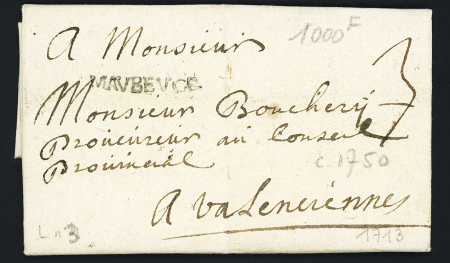 A Monsieur
1000F
MAVBEVGE
Monsieur Boucherij
Procureur au Conseil
Provincial
c. 1750
A valenciennes
L n°3
1713